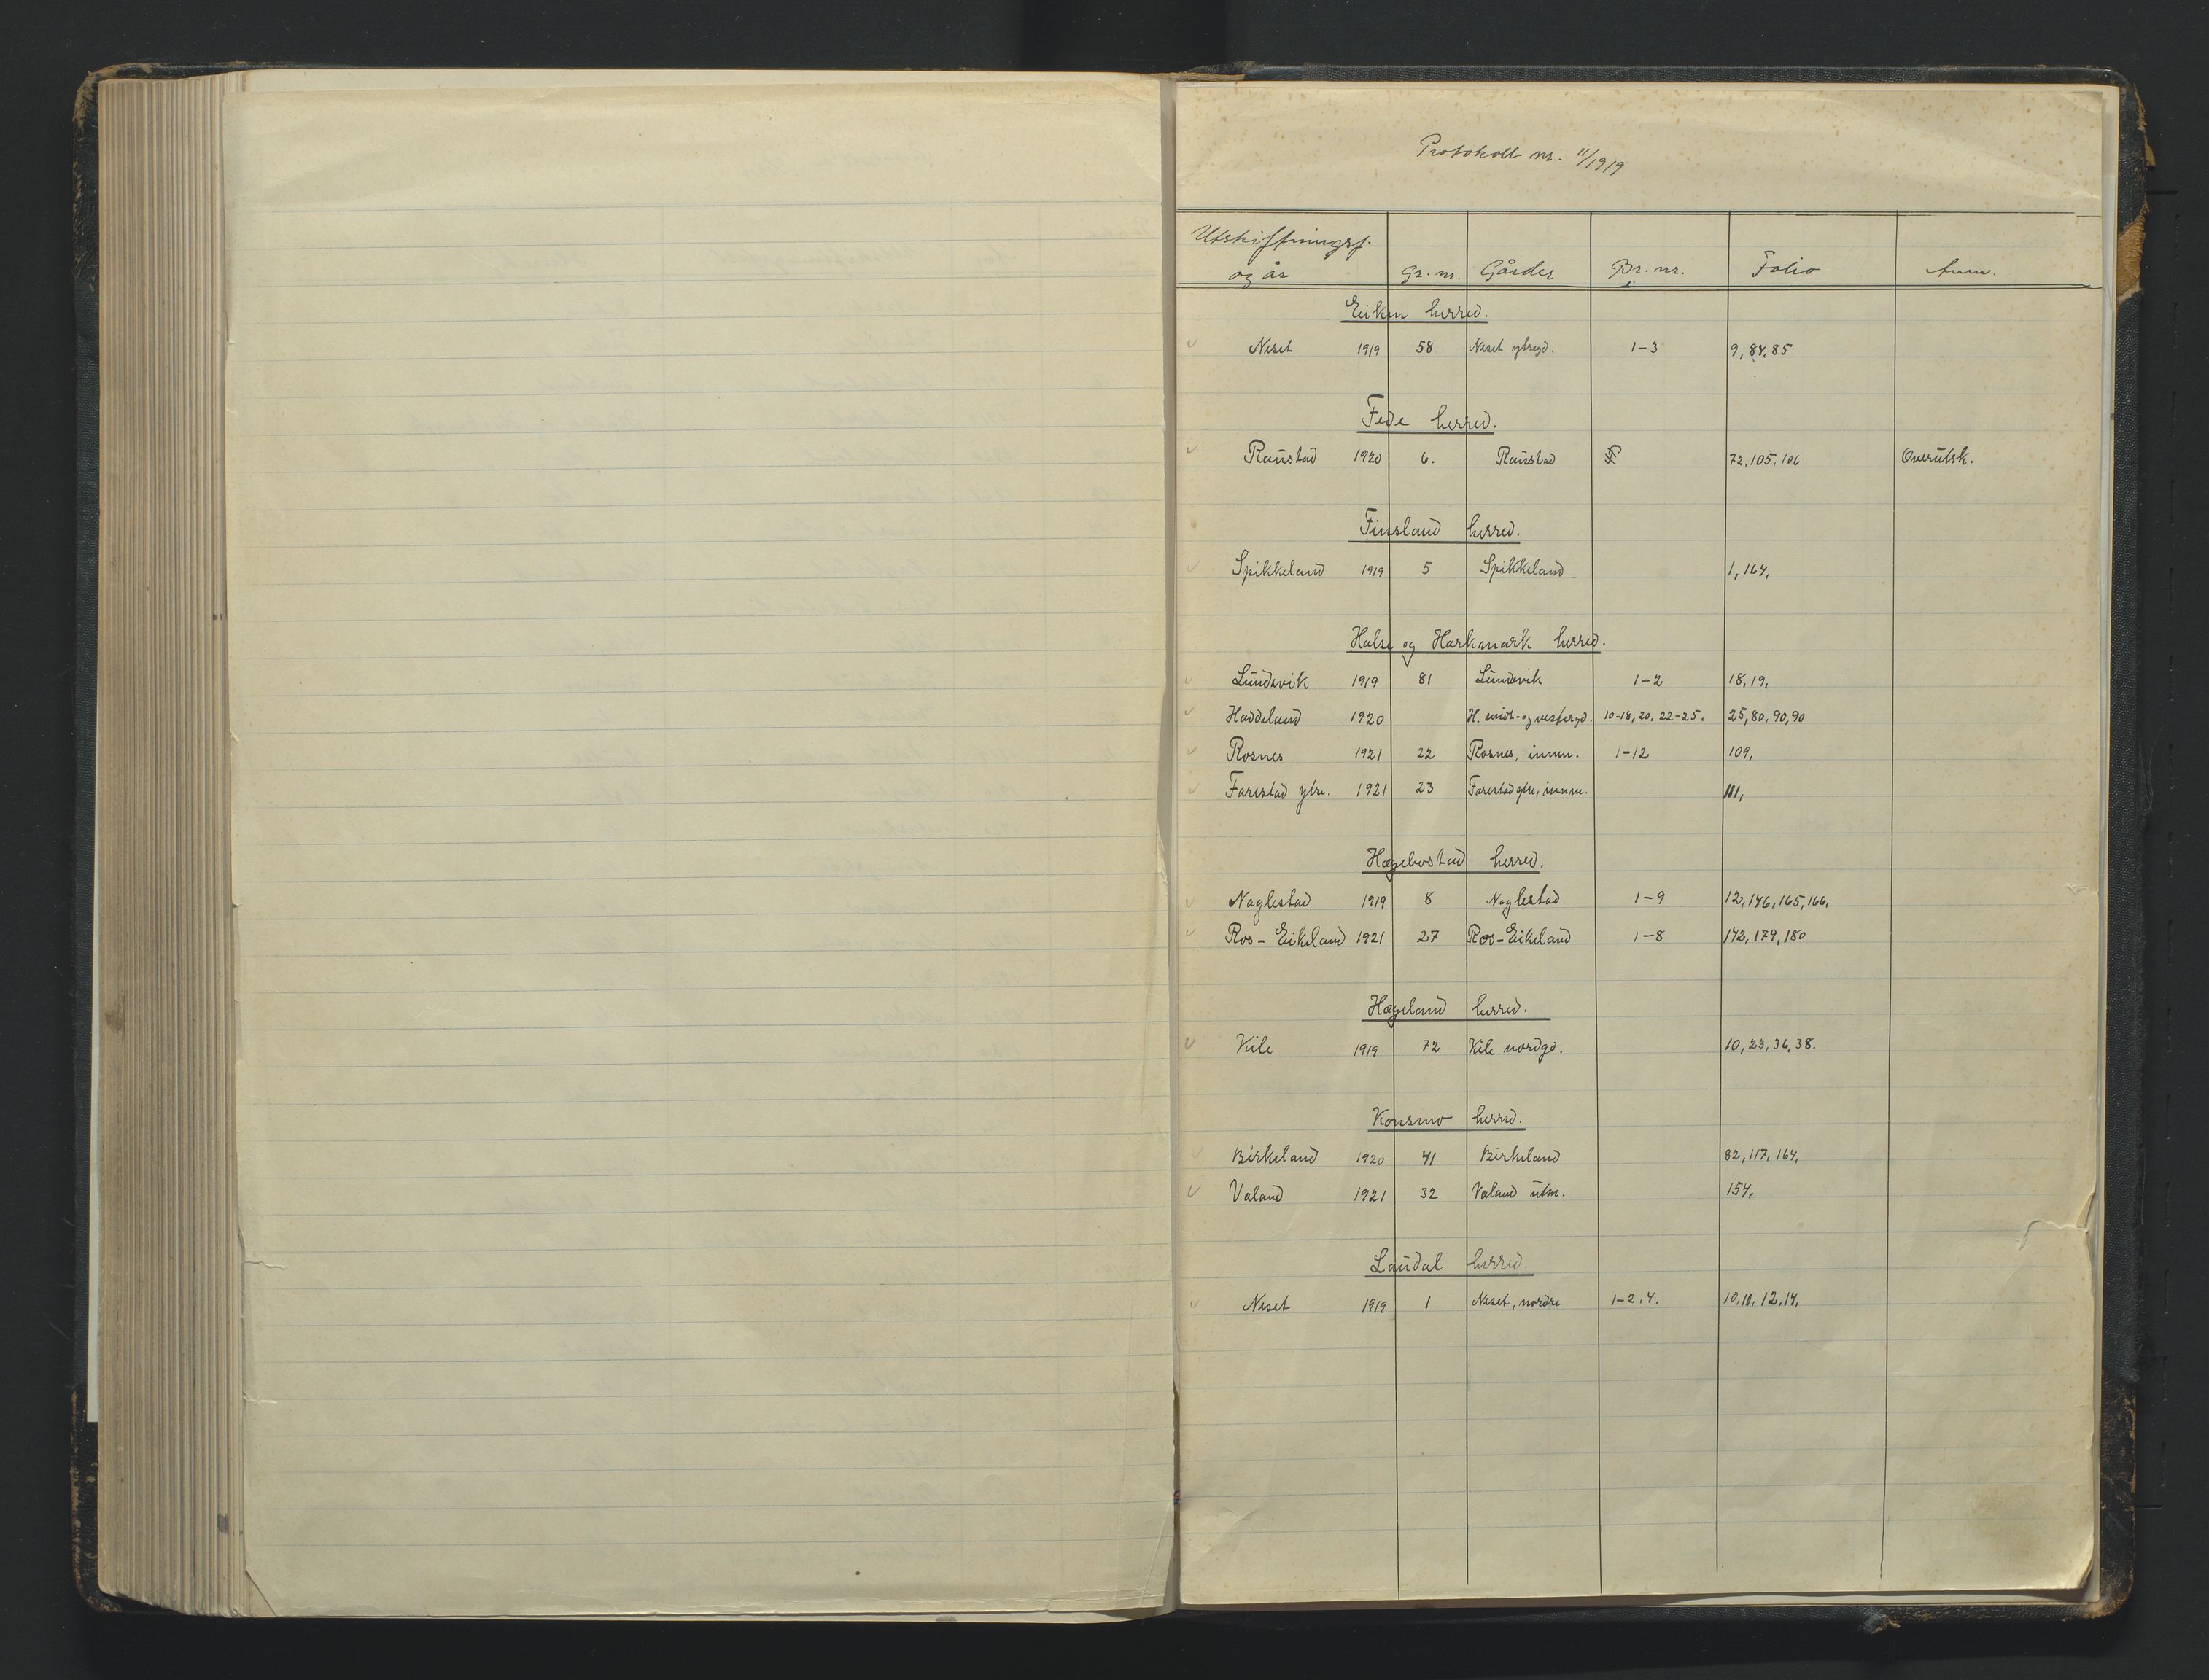 Protokoll nr. 11/1919
Utskiftningsf.
og år Gr. nr. Gårder Br. nr. Folio Anm.
Eiken herred.
Neset 1919 58 Neset ytregd. 1-3 9, 84, 85
Fede herred.
Raustad 1920 6. Raustad 72, 105, 106 Overutsk.
Finsland herred.
Spikkeland 1919 5 Spikkeland 1, 164,
Halse og Harkmark herred.
Lundevik 1919 81 Lundevik 1-2 18, 19,
Haddeland 1920 H. midt- og vestregd. 10-18, 20, 22-25. 25, 80, 90, 90
Rosnes 1921 22 Rosnes, innm. 1-12 109,
Farestad ytre. 1921 23 Farestad ytre, innm. 111,
Hægebostad herred.
Naglestad 1919 8 Naglestad 1-9 12, 146, 165, 166,
Ros-Eikeland 1921 27 Ros-Eikeland 1-8 142, 179, 180
Hægeland herred.
Kile 1919 72 Kile nordgd. 10, 23, 36, 38.
Konsmo herred.
Birkeland 1920 41 Birkeland 82, 117, 164,
Valand 1921 32 Valand utm. 154,
Laudal herred.
Neset 1919 1 Neset, nordre 1-2, 4. 10, 11, 12, 14,